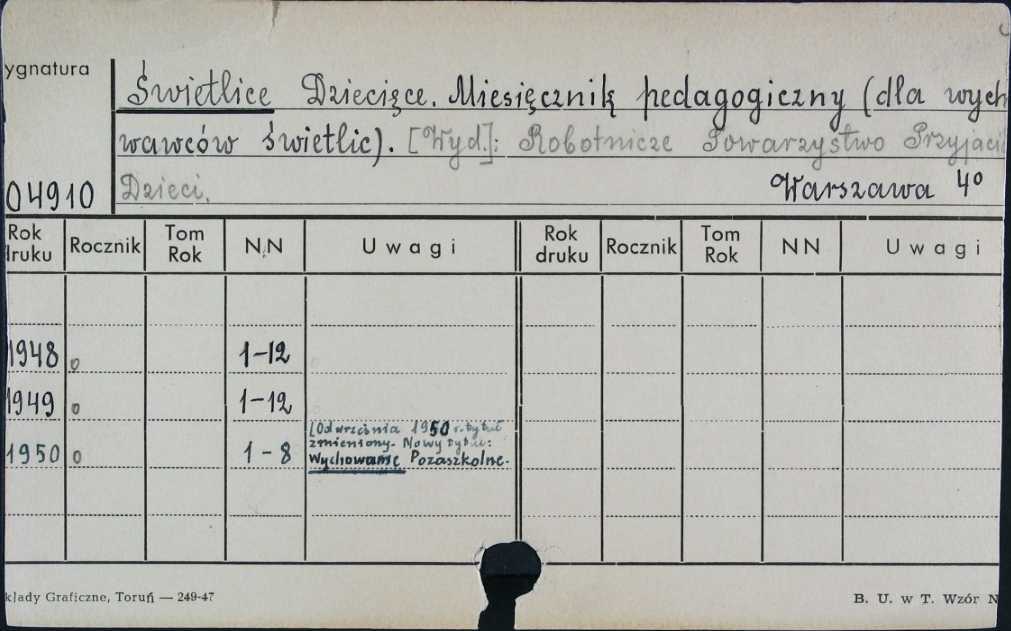 ygnatura
Świetlice Dziecięce. Miesięcznik pedagogiczny (dla wych
wawców świetlic). [Wyd.]: Robotnicze Towarzystwo Przyjaci
Dzieci.
04910 Warszawa 4º
Rok druku Rocznik Tom Rok N.N Uwagi Rok druku Rocznik Tom Rok NN Uwagi
1948 o 1-12
1949 o 1-12
[Od września 1950 r. tytuł
zmieniony. Nowy tytuł:
1950 o 1-8 Wychowanie Pozaszkolne.
kłady Graficzne, Toruń — 249-47 B. U. w T. Wzór N